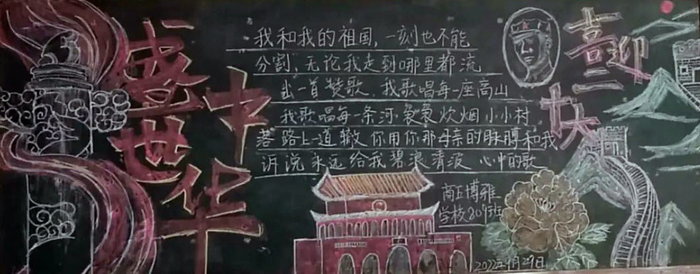 盛世
中华
我和我的祖国，一刻也不能
分割，无论我走到哪里都流
出一首赞歌，我歌唱每一座高山
我歌唱每一条河袅袅炊烟小小村
落路上一道辙你用你那母亲的脉膊和我
诉说永远给我碧浪清波 心中的歌
喜迎
二十大
学校809班
2022年9月29日